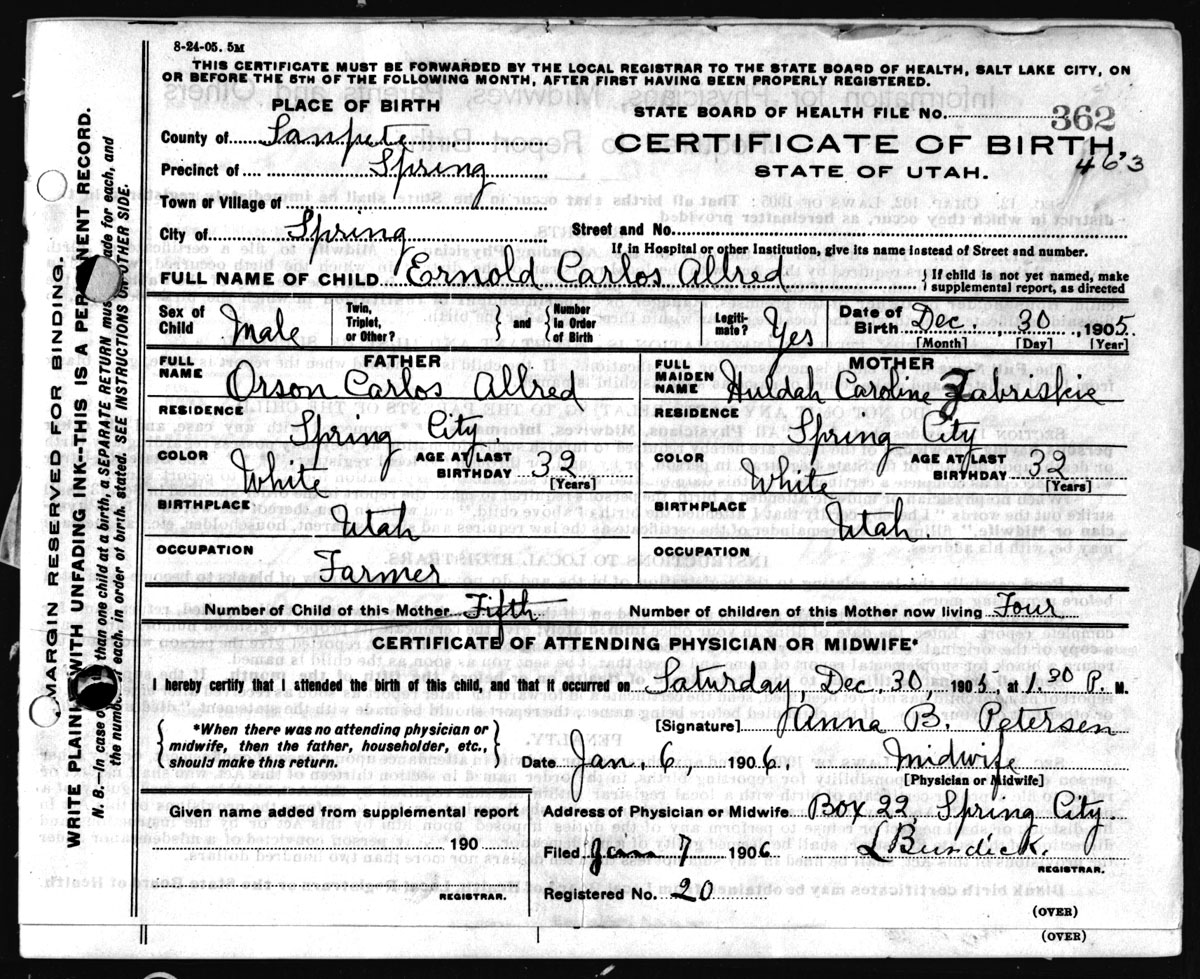 8-24-05. 5M
THIS CERTIFICATE MUST BE FORWARDED BY THE LOCAL REGISTRAR TO THE STATE BOARD OF HEALTH, SALT LAKE CITY, ON
OR BEFORE THE 5TH OF THE FOLLOWING MONTH, AFTER FIRST HAVING BEEN PROPERLY REGISTERED.
PLACE OF BIRTH
County of Sanpete
Precinct of Spring
Town or Village of
City of Spring
STATE BOARD OF HEALTH FILE No. 362
CERTIFICATE OF BIRTH,
463
STATE OF UTAH.
Street and No.
If in Hospital or other Institution, give its name instead of Street and number.
FULL NAME OF CHILD Ernold Carlos Allred } If child is not yet named, make supplemental report, as directed
Sex of Child Male Twin, Triplet, or Other? } and { Number In Order of Birth Legiti-mate? Yes Date of Birth Dec. 30, 1905.
[Month] [Day] [Year]
FATHER
FULL NAME Orson Carlos Allred
RESIDENCE Spring City.
COLOR White AGE AT LAST BIRTHDAY 32
[Years]
BIRTHPLACE Utah
OCCUPATION Farmer
MOTHER
FULL MAIDEN NAME Huldah Caroline Zabriskie
RESIDENCE Spring City
COLOR White AGE AT LAST BIRTHDAY 32
[Years]
BIRTHPLACE Utah.
OCCUPATION
Number of Child of this Mother Fifth Number of children of this Mother now living Four
CERTIFICATE OF ATTENDING PHYSICIAN OR MIDWIFE*
I hereby certify that I attended the birth of this child, and that it occurred on Saturday, Dec. 30, 1905, at 1.30 P. M.
{ *When there was no attending physician or midwife, then the father, householder, etc., should make this return. }
[Signature] Anna B. Petersen
Date Jan. 6, 1906. Midwife
[Physician or Midwife]
Given name added from supplemental report
190
REGISTRAR.
Address of Physician or Midwife Box 22, Spring City.
Filed Jan 7 1906 L Burdick.
REGISTRAR.
Registered No. 20
(OVER)
(OVER)
MARGIN RESERVED FOR BINDING.
WRITE PLAINLY WITH UNFADING INK--THIS IS A PERMANENT RECORD.
N. B.--In case of than one child at a birth, a SEPARATE RETURN must made for each, and
the number of each, in order of birth, stated. SEE INSTRUCTIONS ON OTHER SIDE.